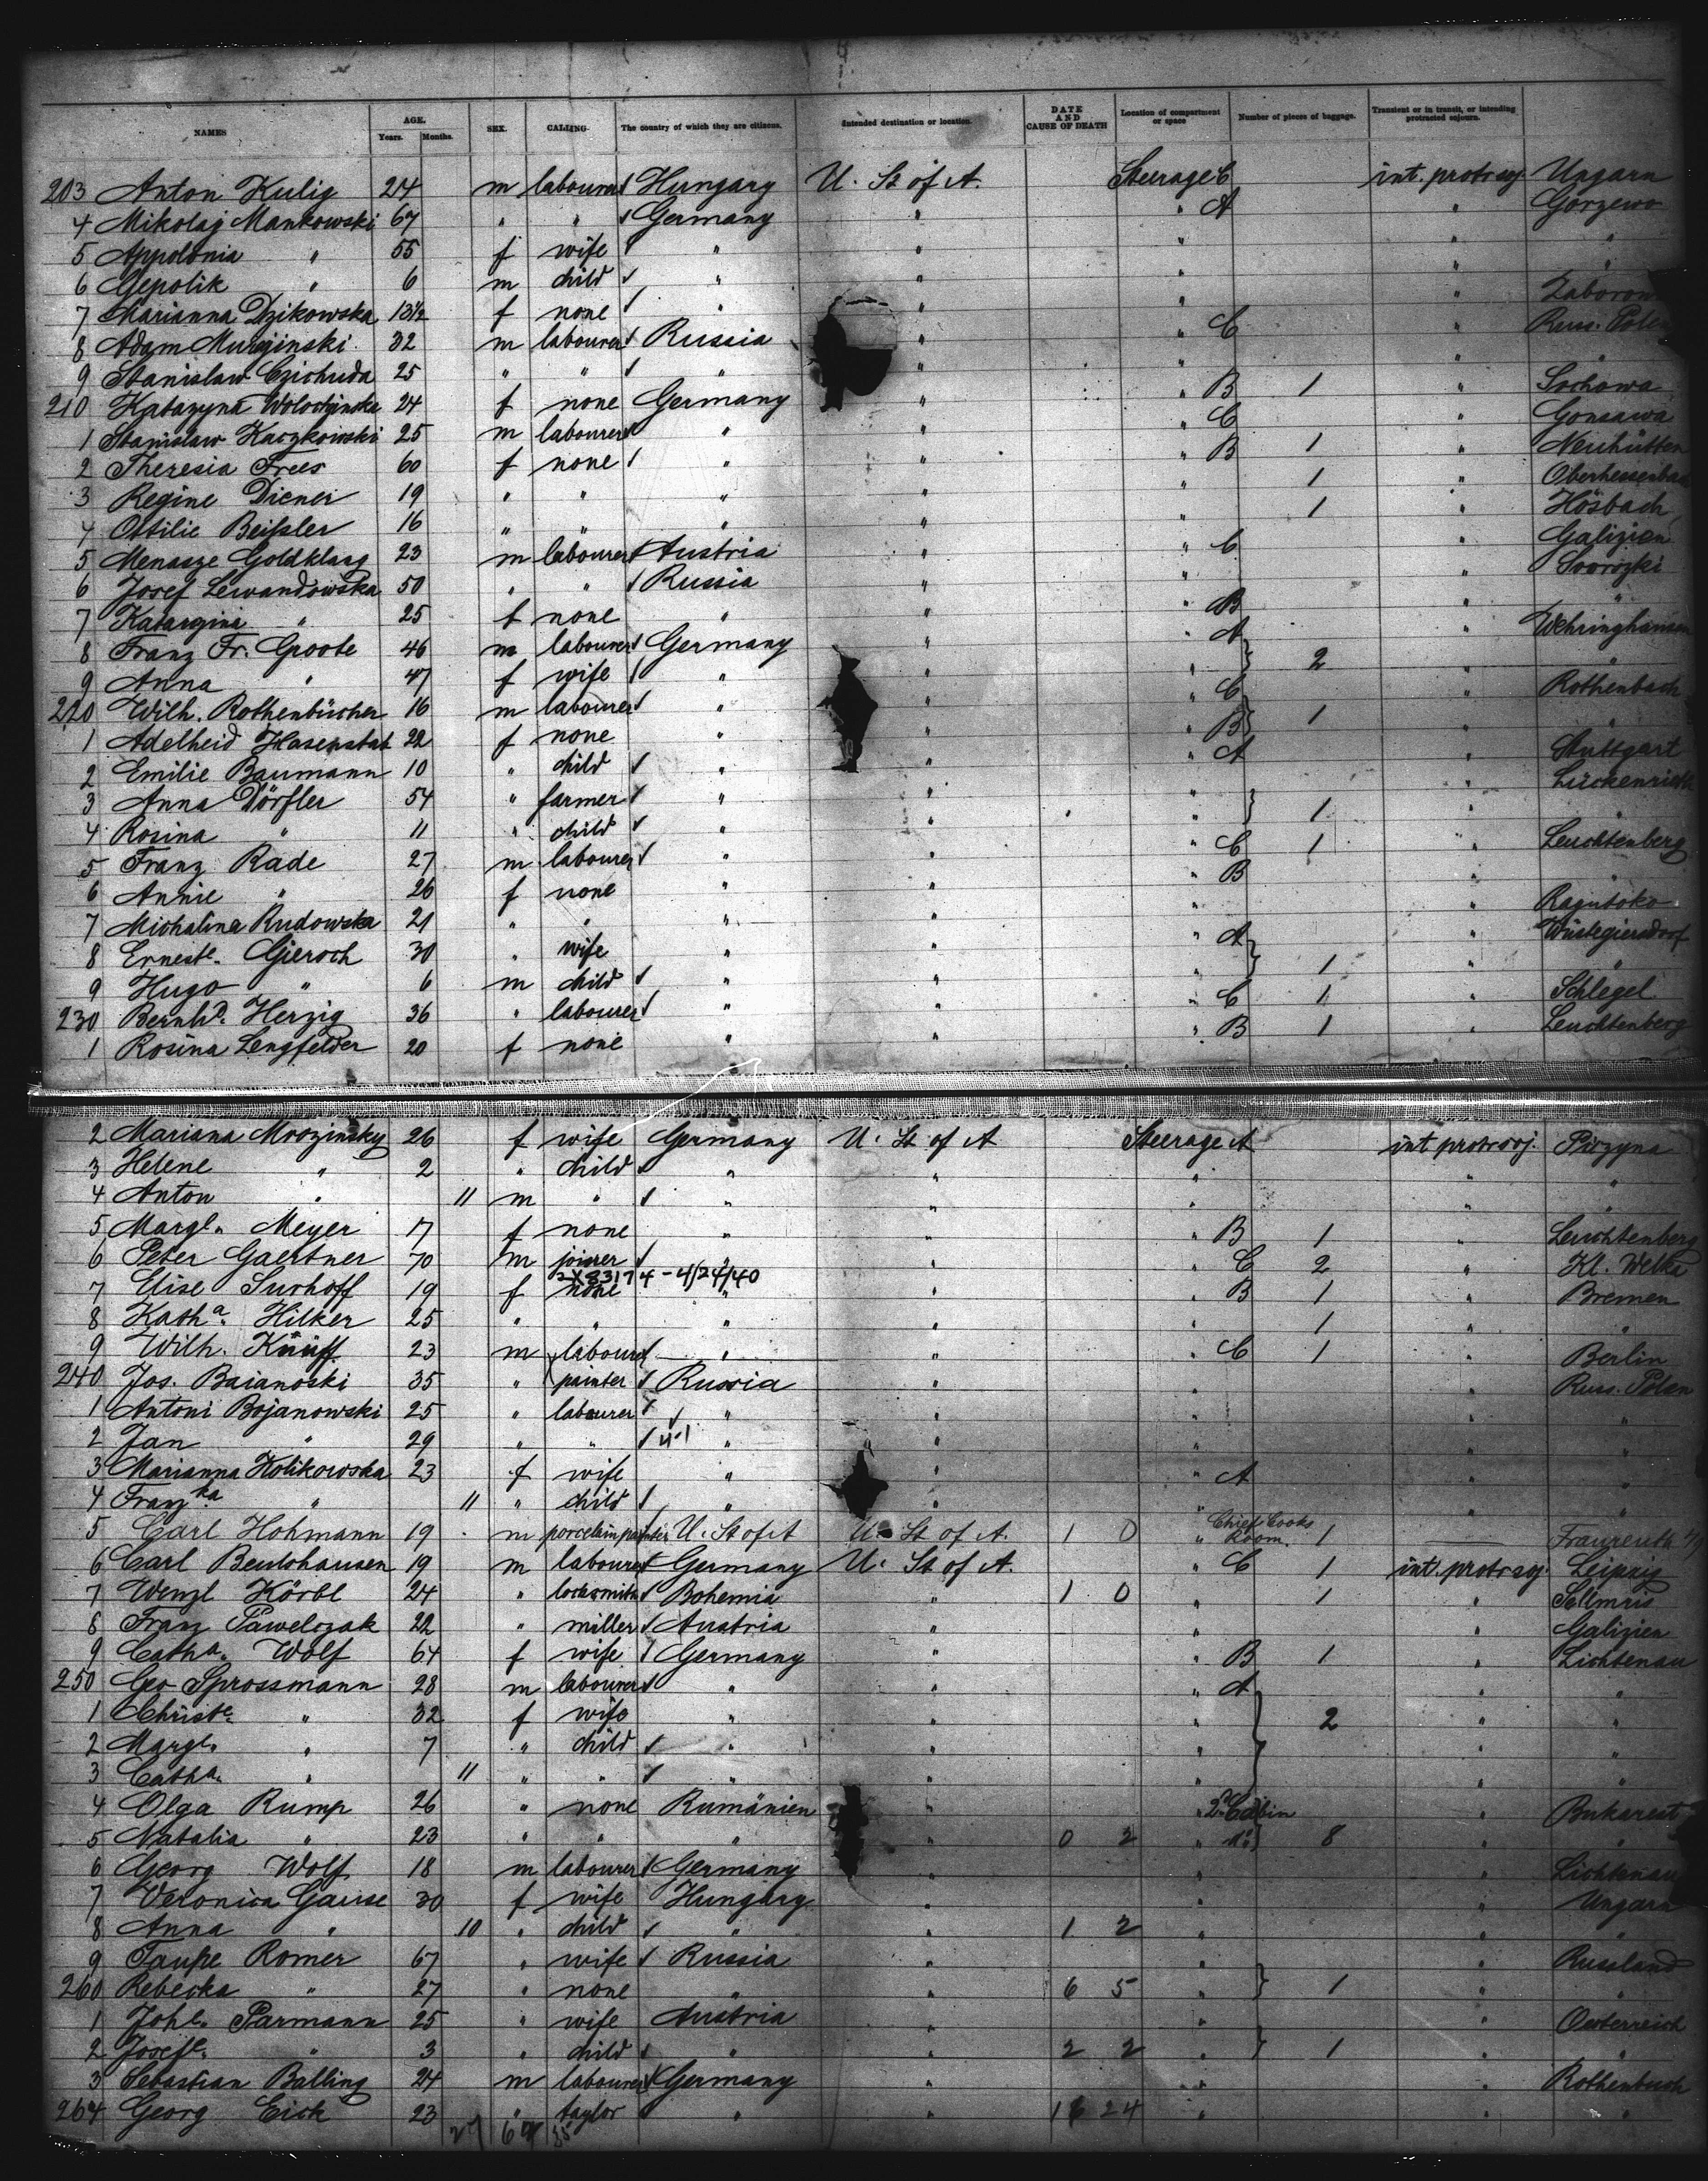 NAMES AGE. Years. Months. SEX. CALLING. The country of which they are citizens. Intended destination or location. DATE AND CAUSE OF DEATH Location of compartment or space Number of pieces of baggage. Transient or in transit, or intending protracted sojourn.
203 Anton Kulig 24 m labourer Hungary U. St of A. Steerage C int. protr. soj. Ungarn
4 Mikolaj Mankowski 67 " " Germany " " A " Gorzewo
5 Appolonia " 55 f wife " " " " "
6 " 6 m child " " " " "
7 Marianna Dzikowska 13½ f none " " " "
8 Adam Murzinski 32 m labourer Russia " " C " Russ. Pole
9 Stanislaw Czichuda 25 " " " " " " "
210 Katazyna 24 f none Germany " " B 1 " Sochowa
1 Stanislaw Kaczkowski 25 m labourer " " " C " Gonsawa
2 Theresia Frees 60 f none " " " B 1 " Neuhütten
3 Regine Diener 19 " " " " " 1 "
4 Ottilie Beißler 16 " " " " " 1 " Hösbach
5 Menasze Goldklang 23 m labourer Austria " " C " Galizien
6 Josef Lewandowska 50 " " Russia " " "
7 Katargina " 25 f none " " " B " "
8 Franz Fr. Groote 46 m labourer Germany " " A " Wehringhausen
9 Anna " 47 f wife " " " 2 " "
220 Wilh. Rothenbücher 16 m labourer " " " C " Rothenbach
1 Adelheid Hasenstab 22 f none " " " B 1 " "
2 Emilie Baumann 10 " child " " " A " Stuttgart
3 Anna Dörfler 54 " farmer " " " "
4 Rosina " 11 " child " " " 1 " "
5 Franz Rade 27 m labourer " " " C 1 " Leuchtenberg
6 Annie " 26 f none " " " B " "
7 Michalina Rudowska 21 " " " " " "
8 Erneste. Gieroch 30 " wife " " " A " Wüstegiersdorf
9 Hugo " 6 m child " " " 1 " "
230 Bernhd. Herzig 36 " labourer " " " C 1 " Schlegel
1 Rosina Lengfelder 20 f none " " " B 1 " Leuchtenberg
2 Mariana Mrozinsky 26 f wife Germany U. St of A Steerage A int protr soj.
3 Helene " 2 " child " " " " "
4 Anton " 11 m " " " " " "
5 Margl. Meyer 17 f none " " " B 1 " Leuchtenberg
6 Peter Gaertner 70 m joiner " " " C 2 " Kl. Welka
2X83174 - 4/24/40
7 Elise Surhoff 19 f none " " " B 1 " Bremen
8 Katha. Hilker 25 " " " " " 1 " "
9 Wilh. Knüff 23 m labourer " " " C 1 " Berlin
240 Jos. Baianoski 35 " painter Russia " " " Russ. Polen
1 Antoni Bojanowski 25 " labourer " " " " "
2 Jan " 29 " " " " " " "
3 Marianna Holikowska 23 f wife " " " A " "
4 Franzka " 11 " child " " " " "
5 Carl Hohmann 19 m porcelain painter U. St of A U. St of A. 1 0 " Chief Cooks Room. 1 Fraureuth
6 Carl Beulshausen 19 m labourer Germany U. St of A. " C 1 int. protr soj. Leipzig
7 Wenzl Körbl 24 " locksmith Bohemia " 1 0 " 1 "
8 Franz Pawelczak 22 " miller Austria " " " Galizien
9 Catha. Wolf 64 f wife Germany " " B 1 " Lichtenau
250 Geo Sprossmann 28 m labourer " " " A " "
1 Christe. " 32 f wife " " " 2 " "
2 Margl. " 7 " child " " " " "
3 Catha. " 11 " " " " " " "
4 Olga Rump 26 " none Rumänien " " 2d Cabin " Bukarest
5 Natalia " 23 " " " " 0 2 " 8 " "
6 Georg Wolf 18 m labourer Germany " " " Lichtenau
7 Veronica Gause 30 f wife Hungary " " " Ungarn
8 Anna " 10 " child " " 1 2 " " "
9 Taupe Romer 67 " wife Russia " " " Russland
260 Rebecka " 27 " none " " 6 5 " 1 " "
1 Johe. Parmann 25 " wife Austria " " " Oesterreich
2 Josefe. " 3 " child " " 2 2 " 1 " "
3 Sebastian Balling 24 m labourer Germany " " " Rothenbuch
264 Georg Eick 23 " taylor " " 24 " "